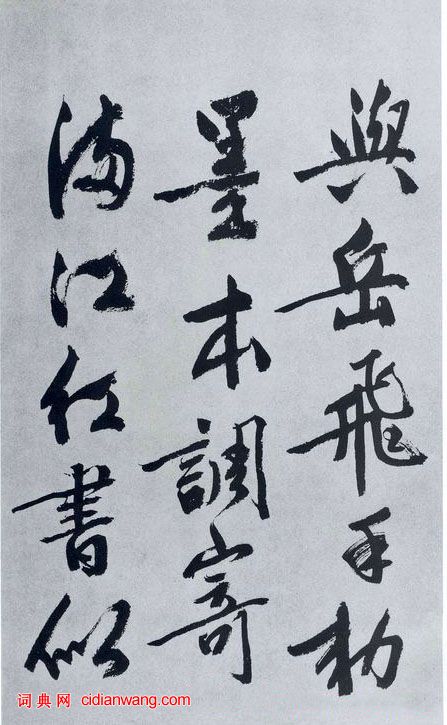 與岳飛手勅
墨本調寄
滿江紅書似
词典网 cidianwang.com